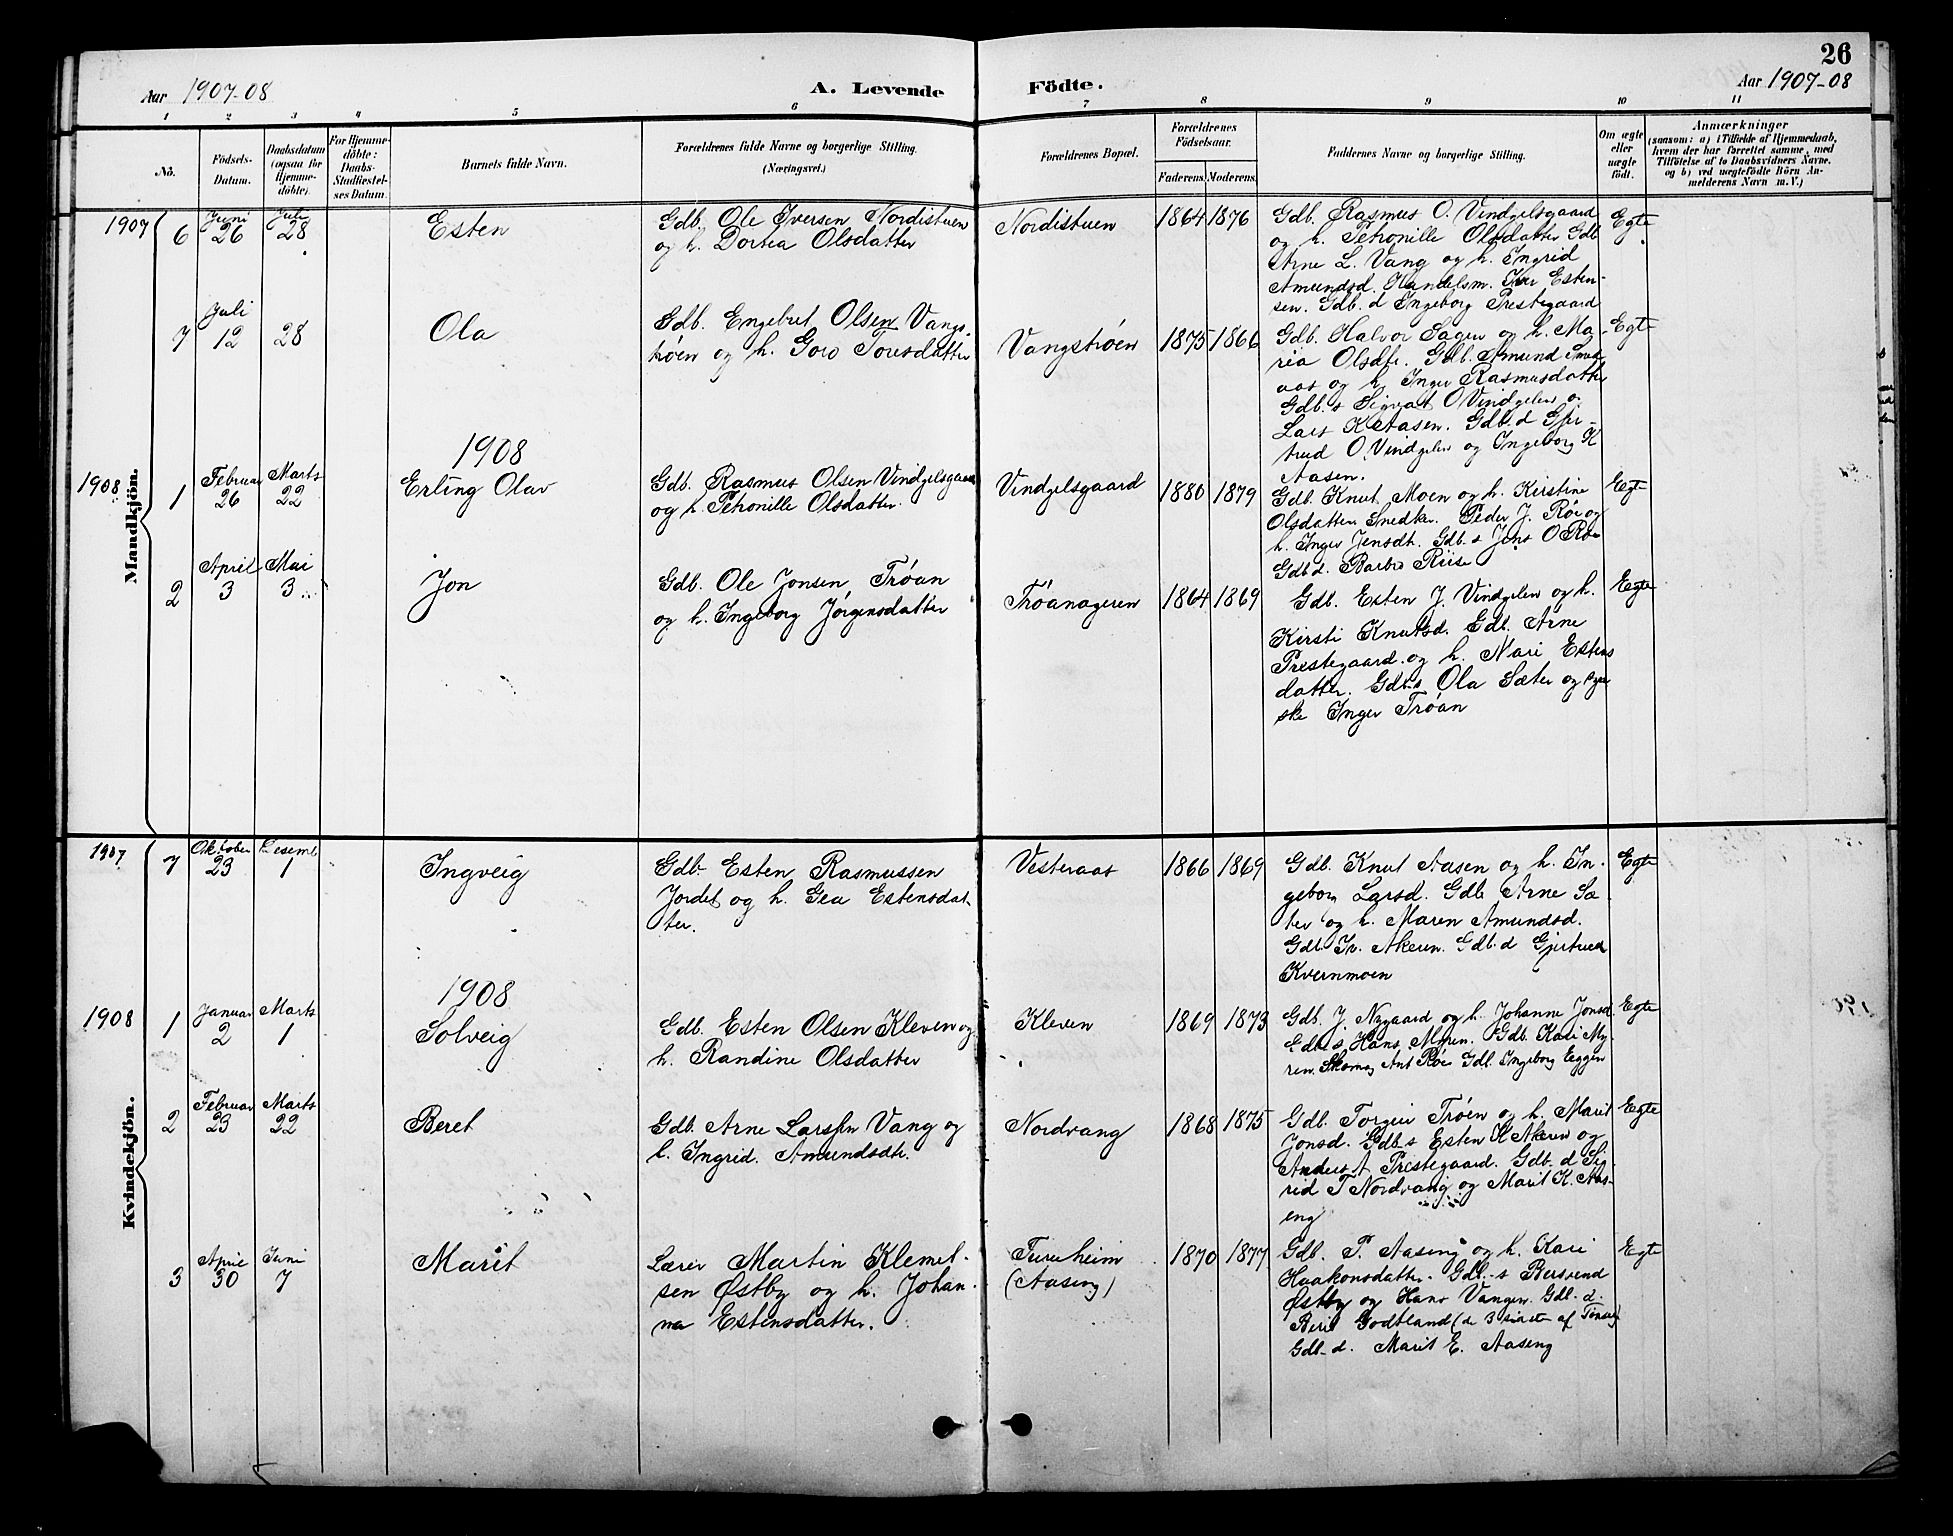 26
Aar 1907-08
A. Levende
Födte.
Aar 1907-08
1 2 3 4 5 6 7 8 9 10 11
No.
Födsels-
Datum.
Daabsdatum
(ogsaa for
Hjemme-
döbte).
For Hjemme-
döbte:
Daabs-
Stadfæstel-
ses Datum.
Barnets fulde Navn.
Forældrenes fulde Navne og borgerlige Stilling.
(Næringsvei.)
Forældrenes Bopæl.
Forældrenes
Födselsaar.
Faderens. Moderens.
Faddernes Navne og borgerlige Stilling.
Om ægte
eller
uægte
födt.
Anmærkninger
(saasom: a) i Tilfælde af Hjemmedaab,
hvem der har forrettet samme, med
Tilföielse af to Daabsvidners Navne,
og b) ved uægtefödte Börn An-
melderens Navn m. V.)
Mandkjön.
1907
6
Juni
26
Juli
28
Esten
Gdb. Ole Iversen Nordistuen
og h. Dortea Olsdatter
Nordistuen
1864 1876
Gdb. Rasmus O. Vindgelsgaard
og h. Petronille Olsdatter Gdb
Arne L. Vang og h. Ingrid
Amundsd. Handelsm. Iver Esten-
sen. Gdb. d Ingeborg Prestegaard
Egte
7
Juli
12
28
Ola
Gdb. Engebret Olsen Vangs-
trøen og h. Goro Toresdatter
Vangstrøen
1875 1866
Gdb. Halvor Sagen og h. Ma-
ria Olsdt. Gdb. Amund
aas og h. Inger Rasmusdatter
Gdb. s Sigvat O Vindgelen o
Lars K Aasen. Gdb. d Gjer-
trud O. Vindgelen og Ingeborg K
Aasen.
Egte
1908
1908
1
Februar
26
Marts
22
Erling Olav
Gdb. Rasmus Olsen Vindgelsgaard
og h. Petronille Olsdatter.
Vindgelsgaard
1880 1879
Gdb. Knut Moen og h. Kirstine
Olsdatter Snedker. Peder J. Røe og
h. Inger Jensdt. Gdb. s Jens O Røe
Gdb d. Barbro Riise
Egte
2
April
3
Mai
3
Jon
Gdb. Ole Jonsen Trøan
og h. Ingeborg Jørgensdatter
Trøanageren
1864 1869
Gdb. Esten J. Vindgelen og h.
Kirsti Knutsd. Gdb. Arne
Prestegaard og h. Mari Estens
datter. Gdb. s Ola Sæter og
ske Inger Trøan
Egte
Kvindekjön.
1907
7
Oktober
23
Desemb
1
Ingveig
Gdb. Esten Rasmussen
Jordet og h. Gea Estensdat-
ter.
Vesteraas
1866 1869
Gdb. Knut Aasen og h. In-
geborg Larsd. Gdb Arne Sæ-
ter og h. Maren Amundsd.
Gdb. Akeren. Gdb. d Gjertrud
Kvernmoen
Egte
1908
1908
1
Januar
2
Marts
1
Solveig
Gdb. Esten Olsen Kleven og
h. Randine Olsdatter
Kleven
1869 1873
Gdb. J. Nygaard og h. Johanne Jonsd
Gdb. s Hans Myren. Gdb. Kari My-
ren. Skomag Ant Røe Gdb. Ingeborg Eggen
Egte
2
Februar
23
Marts
22
Beret
Gdb. Arne Larssen Vang og
h. Ingrid. Amundsdt.
Nordvang
1868 1875
Gdb. Torgeir Trøen og h. Marit
Jonsd. Gdb s Esten H Akeren og
Anders A Prestegaard. Gdb. d Sig-
rid T Nordvang og Marit K. Aas-
eng
Egte
3
April
30
Juni
7
Marit
Lærer Martin Klemet-
sen Østby og h. Johan-
na Estensdatter.
Furuheim
(Aaseng)
1870 1877
Gdb. P. Aaseng og h. Kari
Haakonsdatter. Gdb.-s Bersvend
Østby og Hans Vangen. Gdb. d.
Berit Godtland (de 3 sidste af Tønset)
Gdb-d. Marit E. Aaseng
Egte